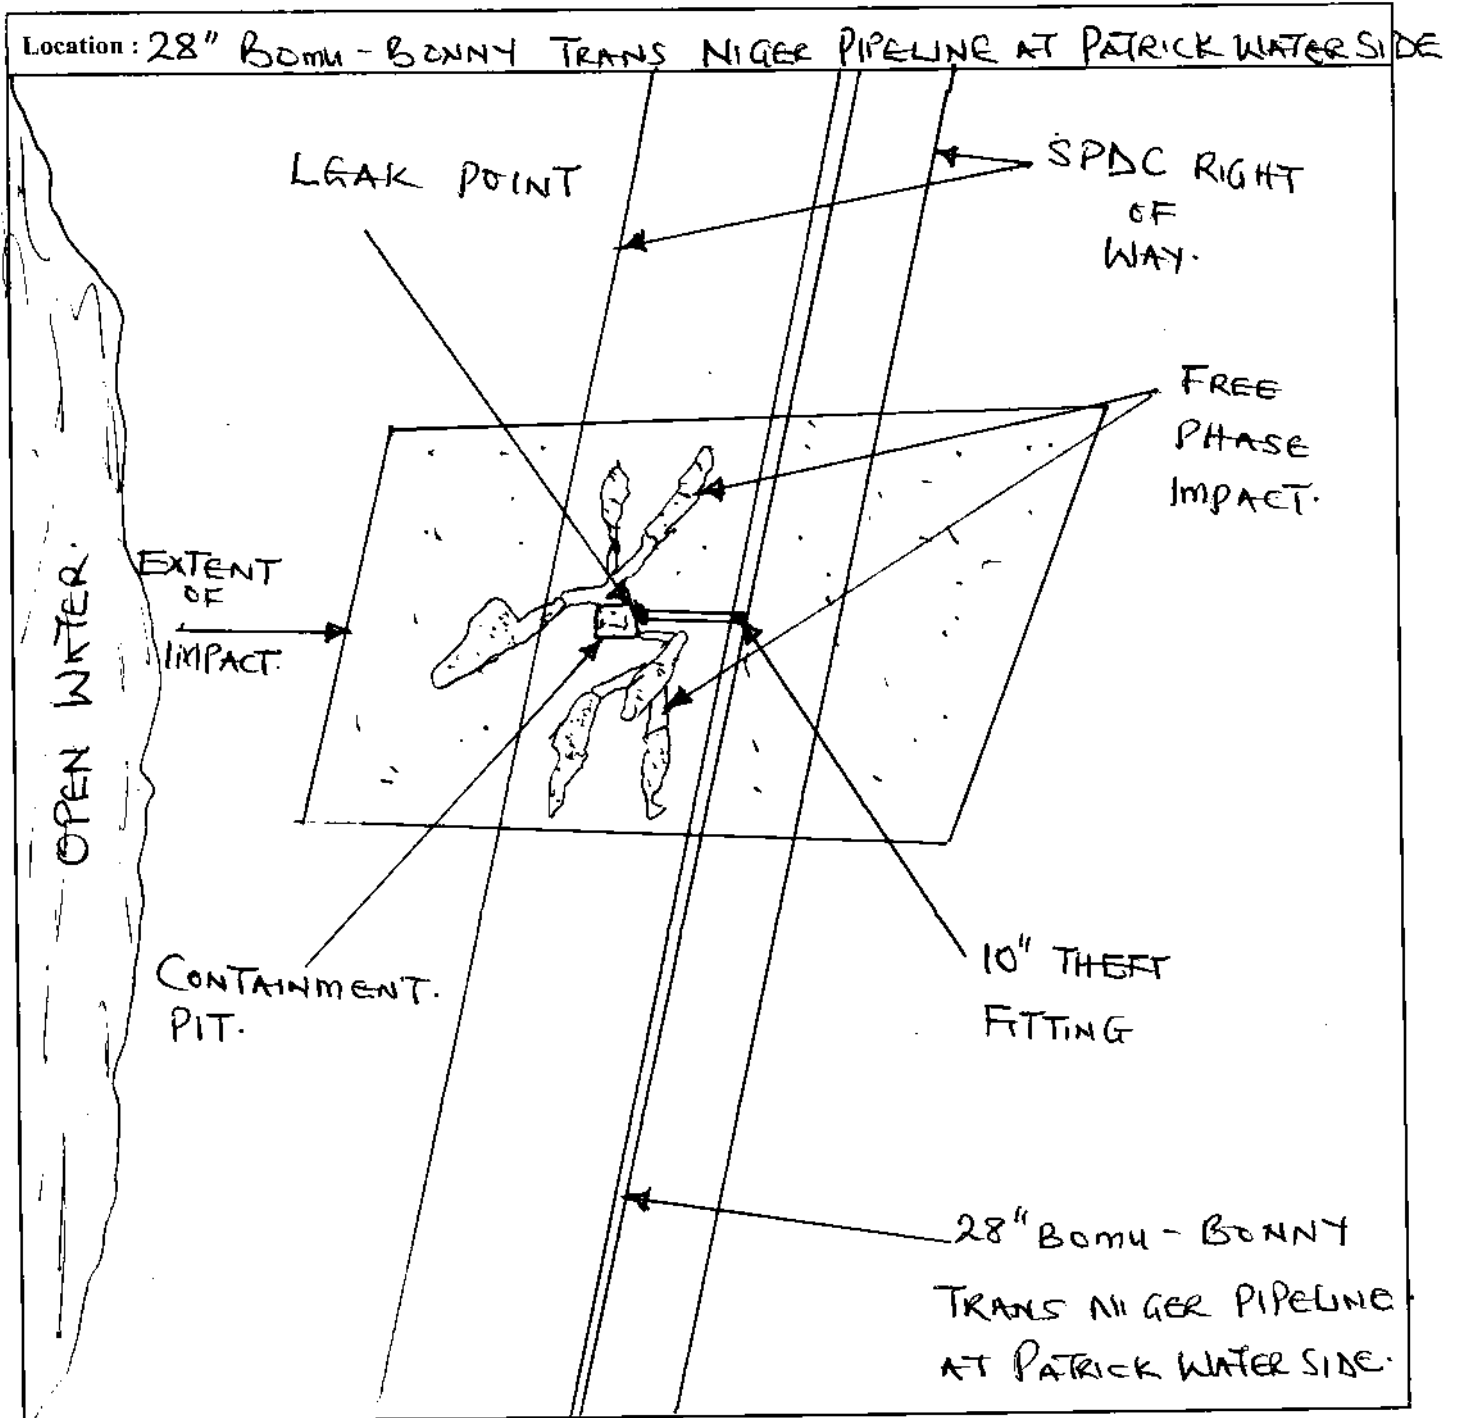 Location : 28" BOMU - BONNY TRANS NIGER PIPELINE AT PATRICK WATER SIDE
LEAK POINT
SPDC RIGHT
OF
WAY.
FREE
PHASE
IMPACT.
EXTENT
OF
IMPACT.
OPEN WATER.
CONTAINMENT.
PIT.
10" THEFT
FITTING
28" BOMU - BONNY
TRANS NIGER PIPELINE
AT PATRICK WATER SIDE.